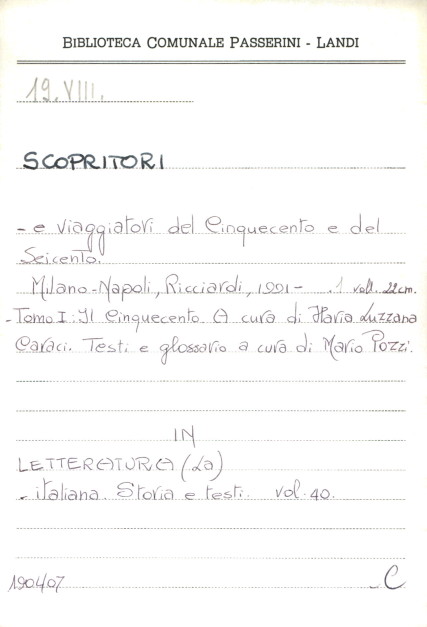 BIBLIOTECA COMUNALE PASSERINI - LANDI
19.VIII.
SCOPRITORI
- e viaggiatori del Cinquecento e del
Seicento.
Milano-Napoli, Ricciardi, 1991- . 1 voll. 22cm.
- Tomo I: Il Cinquecento. A cura di Ilaria Luzzana
Caraci. Testi e glossario a cura di Mario Pozzi.
IN
LETTERATURA (La)
- italiana. Storia e testi. vol. 40.
190407 - C